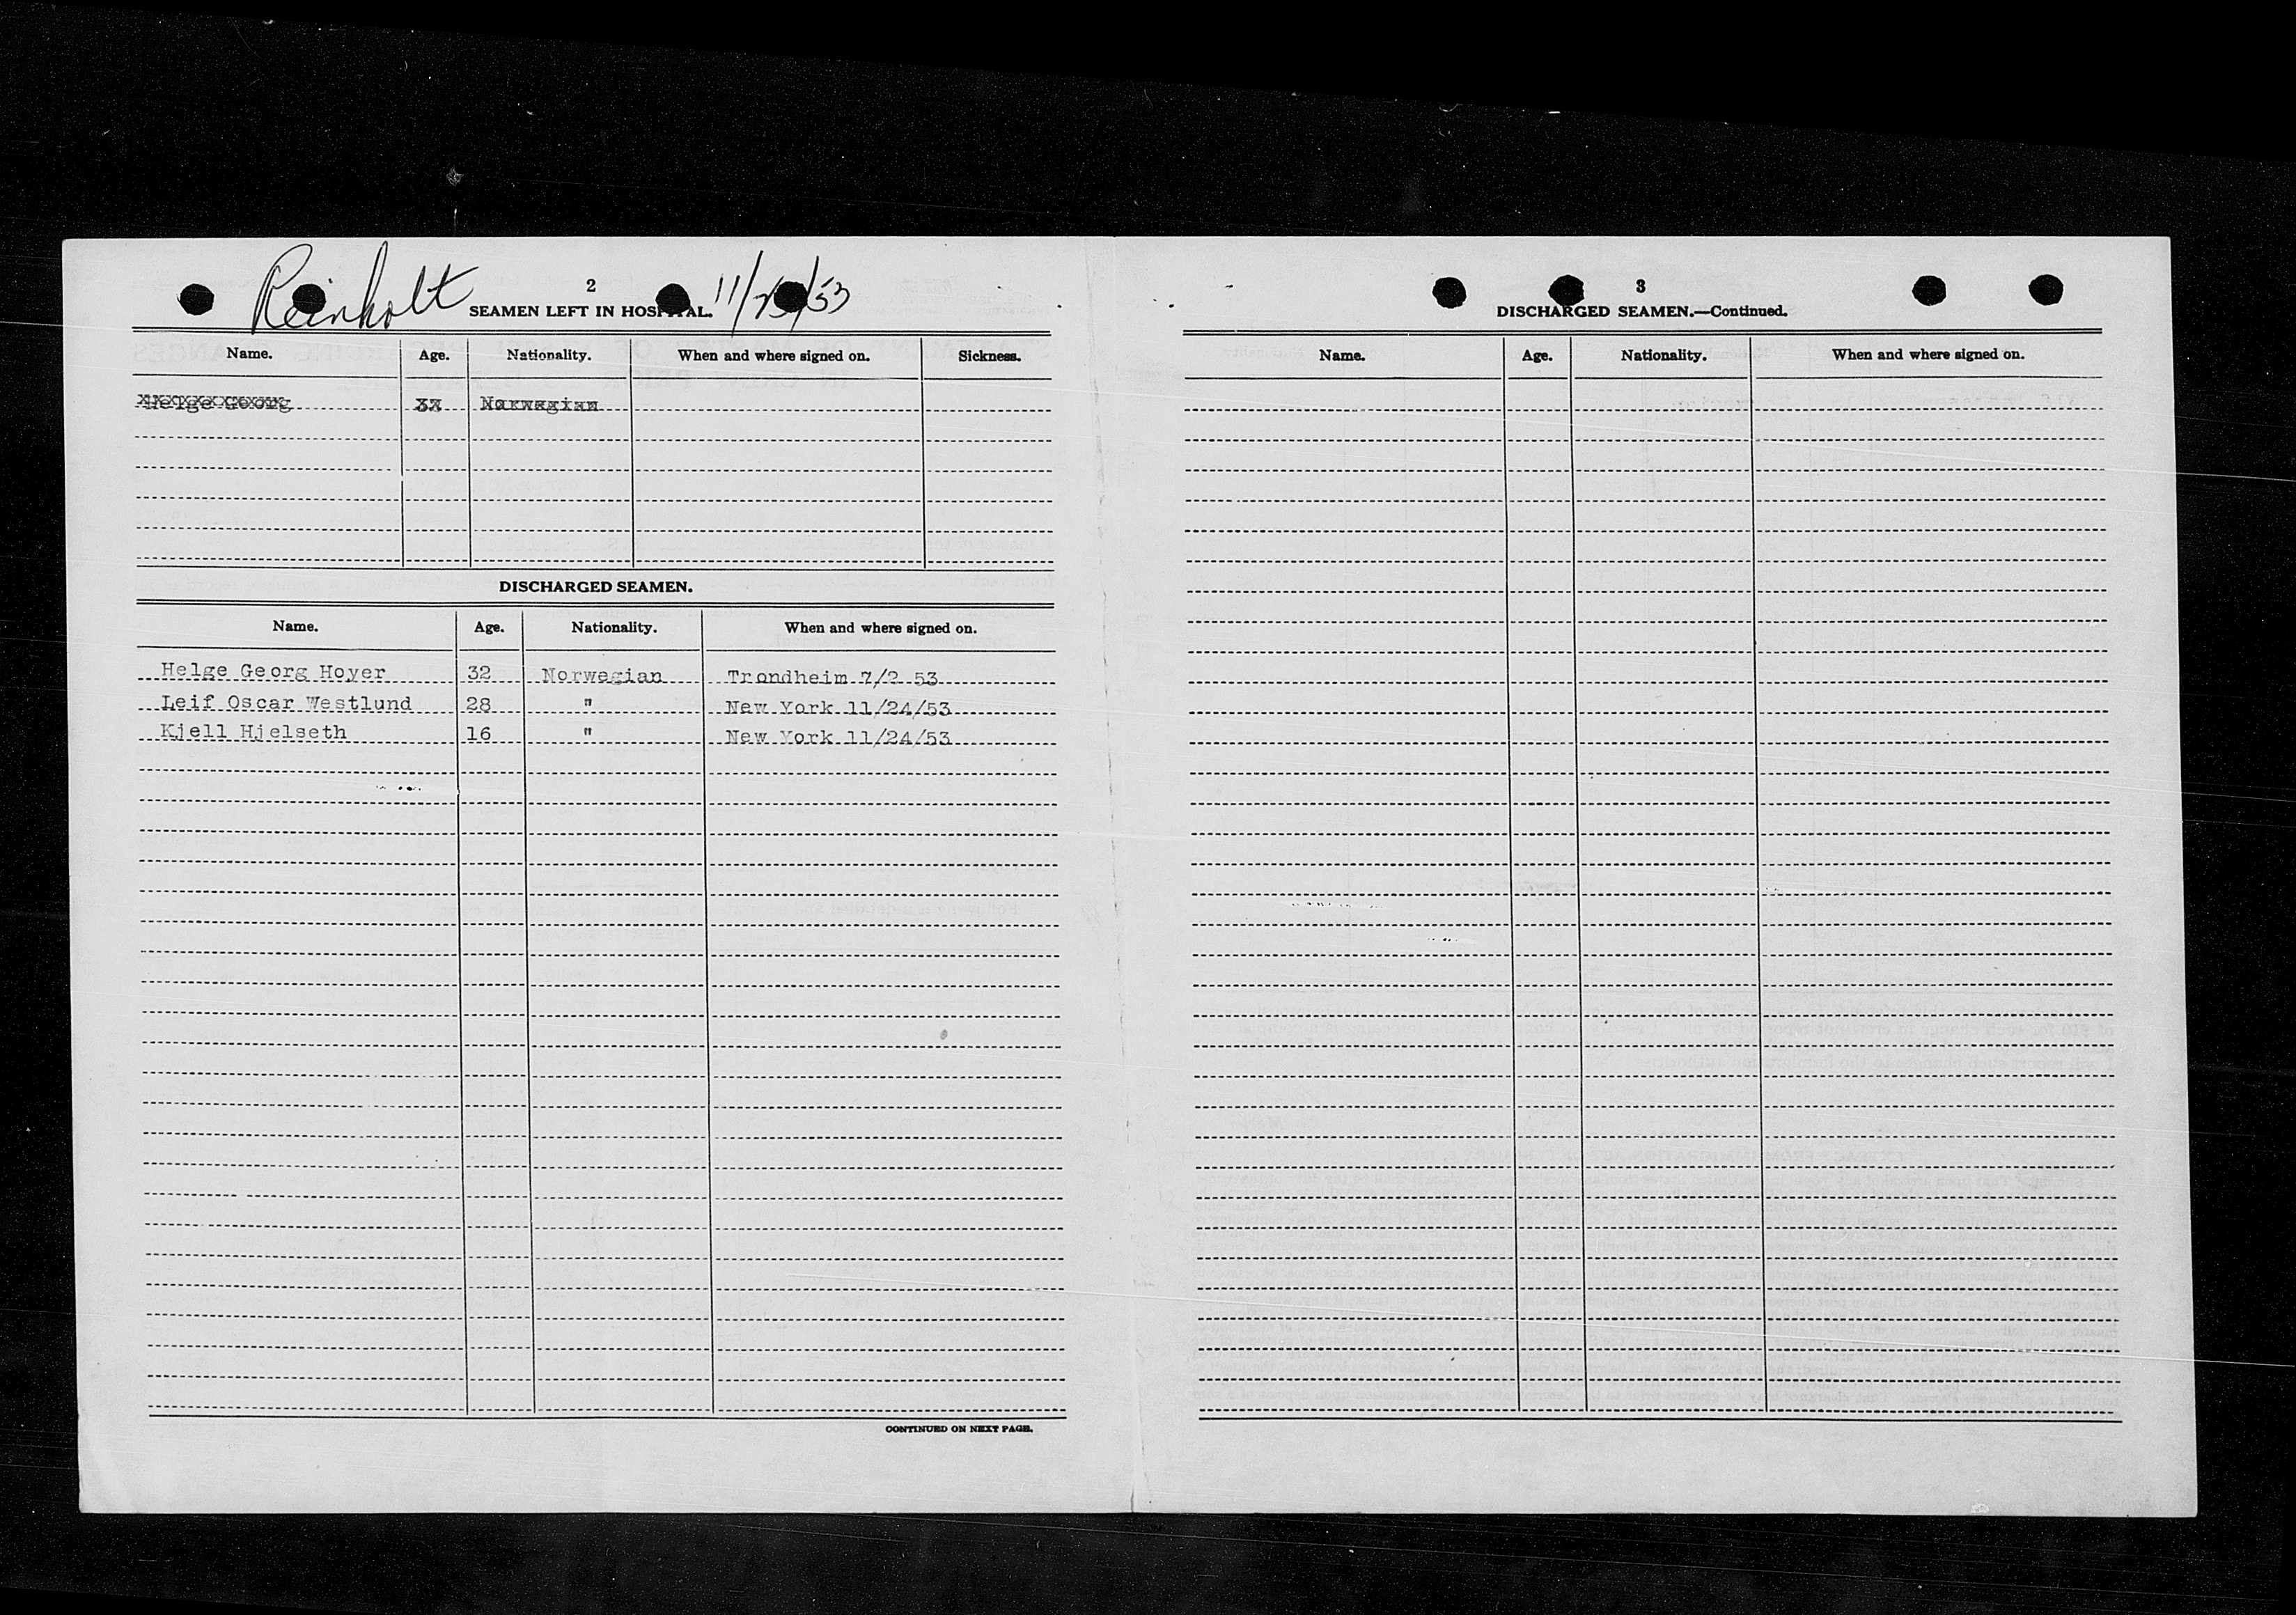 Reinholt
2
SEAMEN LEFT IN HOSPITAL.
Name. Age. Nationality. When and where signed on. Sickness.
Helge Georg 32 Norwegian
DISCHARGED SEAMEN.
Name. Age. Nationality. When and where signed on.
Helge Georg Hoyer 32 Norwegian Trondheim 7/2 53
Leif Oscar Westlund 28 " New York 11/24/53
Kjell Hjelseth 16 " New York 11/24/53
CONTINUED ON NEXT PAGE.
3
DISCHARGED SEAMEN.—Continued.
Name. Age. Nationality. When and where signed on.